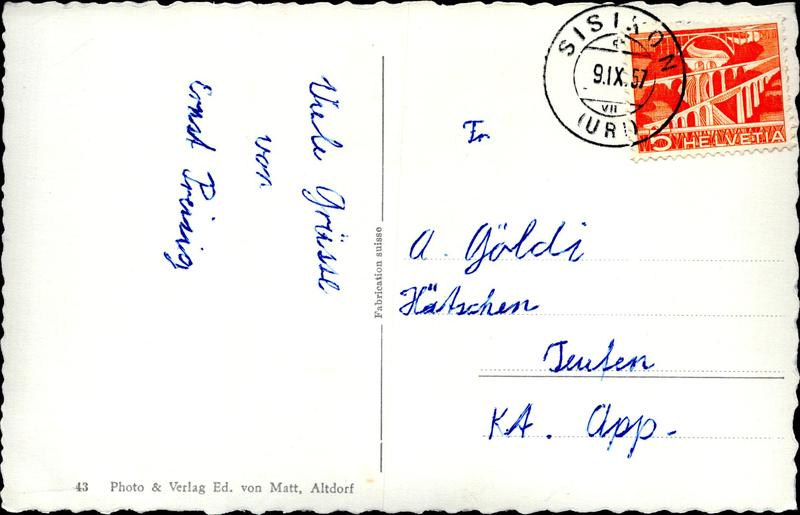 Viele Grüsse
von
Ernst Preisig
43 Photo & Verlag Ed. von Matt, Altdorf
Fabrication suisse
SISIKON
9.IX.57
VII
(URI)
5 HELVETIA
Fr
A. Göldi
Hätschen
Teufen
KA. App.